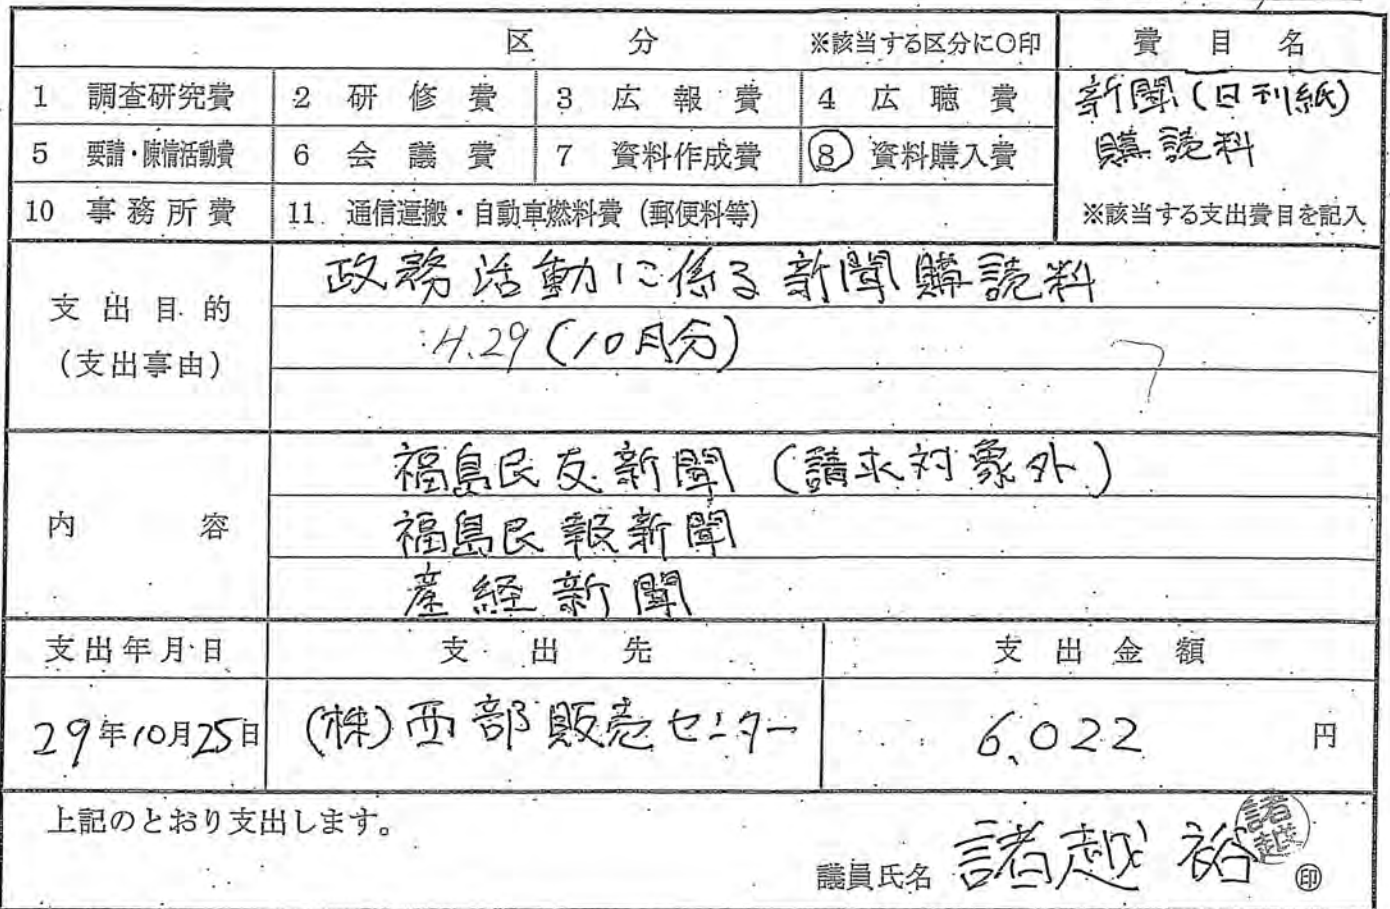 区 分 ※該当する区分に○印 費目名
1 調査研究費 2 研修費 3 広報費 4 広聴費 新聞(日刊紙)
5 要請・陳情活動費 6 会議費 7 資料作成費 8 資料購入費 購読料
10 事務所費 11 通信運搬・自動車燃料費(郵便料等) ※該当する支出費目を記入
支出目的 政務活動に係る新聞購読料
(支出事由) H.29(10月分)
福島民友新聞(請求対象外)
内容 福島民報新聞
産経新聞
支出年月日 支出先 支出金額
29年10月25日 (株)西部販売センター 6,022 円
上記のとおり支出します。
議員氏名 諸越 裕 諸越 印